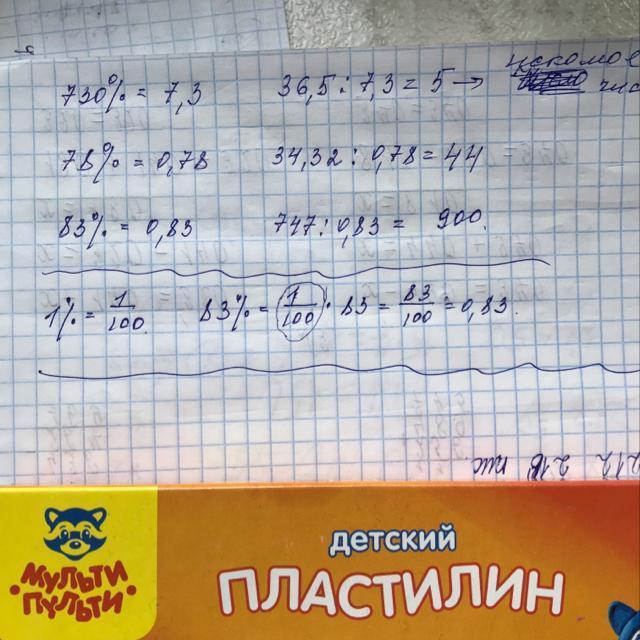 730% = 7,3 36,5 : 7,3 = 5 → искомое
чис
78% = 0,78 34,32 : 0,78 = 44
83% = 0,83 747 : 0,83 = 900.
1% = 1/100 83% = 1/100 · 83 = 83/100 = 0,83.
212 216
детский
ПЛАСТИЛИН
МУЛЬТИ
ПУЛЬТИ